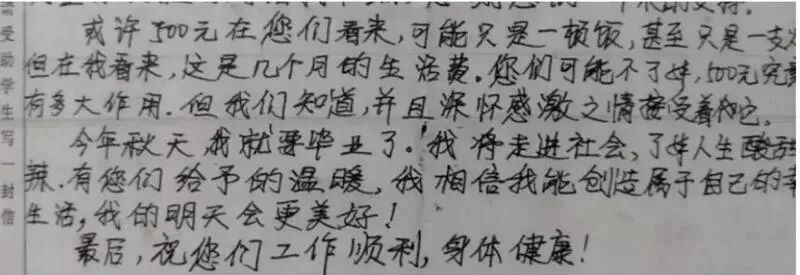 或许500元在您们看来,可能只是一顿饭,甚至只是一支
但在我看来,这是几个月的生活费。您们可能不了解,500元究竟
有多大作用.但我们知道,并且深怀感激之情接受着它。
今年秋天,我就要毕业了。我将走进社会,了解人生酸甜
辣.有您们给予的温暖,我相信我能创造属于自己的幸
生活,我的明天会更美好!
最后,祝您们工作顺利,身体健康!
受助学生写一封信